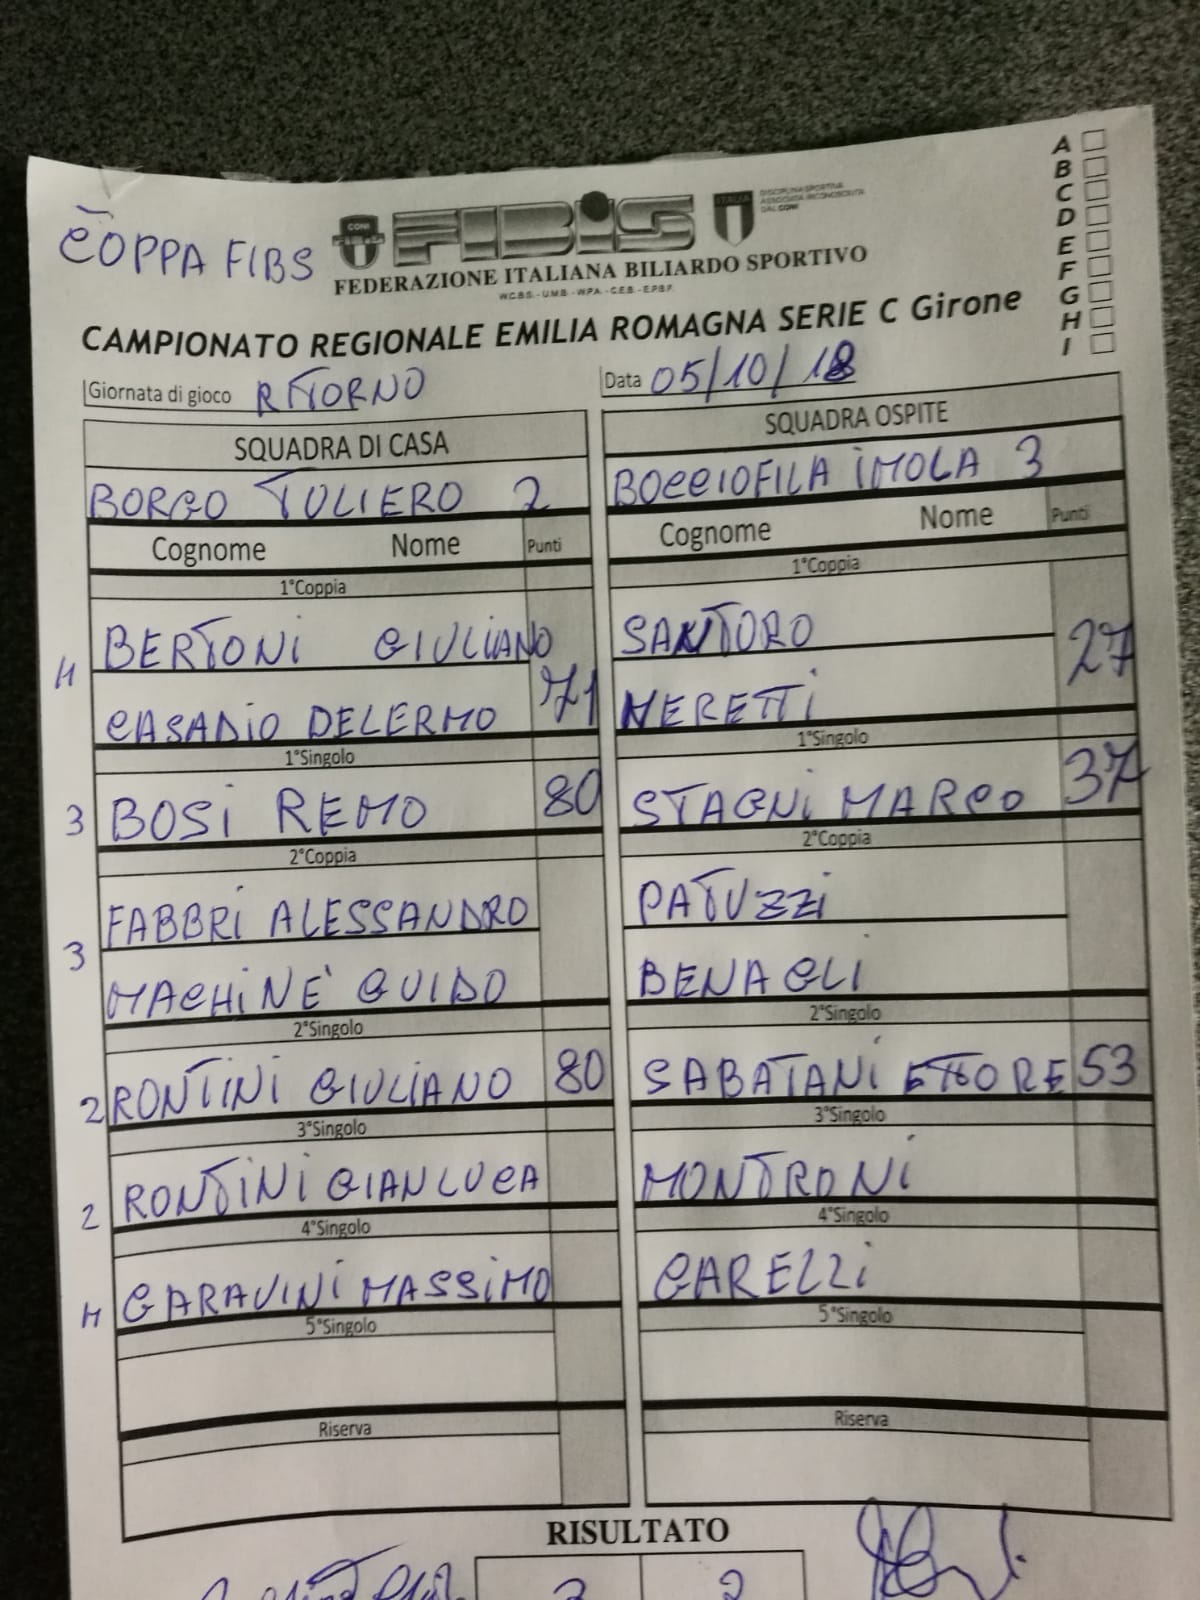 COPPA FIBS
CONI
FIBiS
ITALIA
DISCIPLINA SPORTIVA
ASSOCIATA RICONOSCIUTA
DAL CONI
FEDERAZIONE ITALIANA BILIARDO SPORTIVO
W.C.B.S. - U.M.B. - W.P.A. - C.E.B. - E.P.B.F.
A
B
C
D
E
F
G
H
I
CAMPIONATO REGIONALE EMILIA ROMAGNA SERIE C Girone
Giornata di gioco RITORNO Data 05/10/18
SQUADRA DI CASA SQUADRA OSPITE
BORGO TULIERO 2 BOCCIOFILA IMOLA 3
Cognome Nome Punti Cognome Nome Punti
1°Coppia 1°Coppia
BERTONI GIULIANO SANTORO
H 71 27
CASADIO DELERMO NERETTI
1°Singolo 1°Singolo
3 BOSI REMO 80 STAGNI MARCO 37
2°Coppia 2°Coppia
FABBRI ALESSANDRO PATUZZI
3
MACHINE' GUIDO BENAGLI
2°Singolo 2°Singolo
2 RONTINI GIULIANO 80 SABATANI ETTORE 53
3°Singolo 3°Singolo
2 RONTINI GIANLUCA MONTRONI
4°Singolo 4°Singolo
H GARAVINI MASSIMO CARELLI
5°Singolo 5°Singolo
Riserva Riserva
RISULTATO